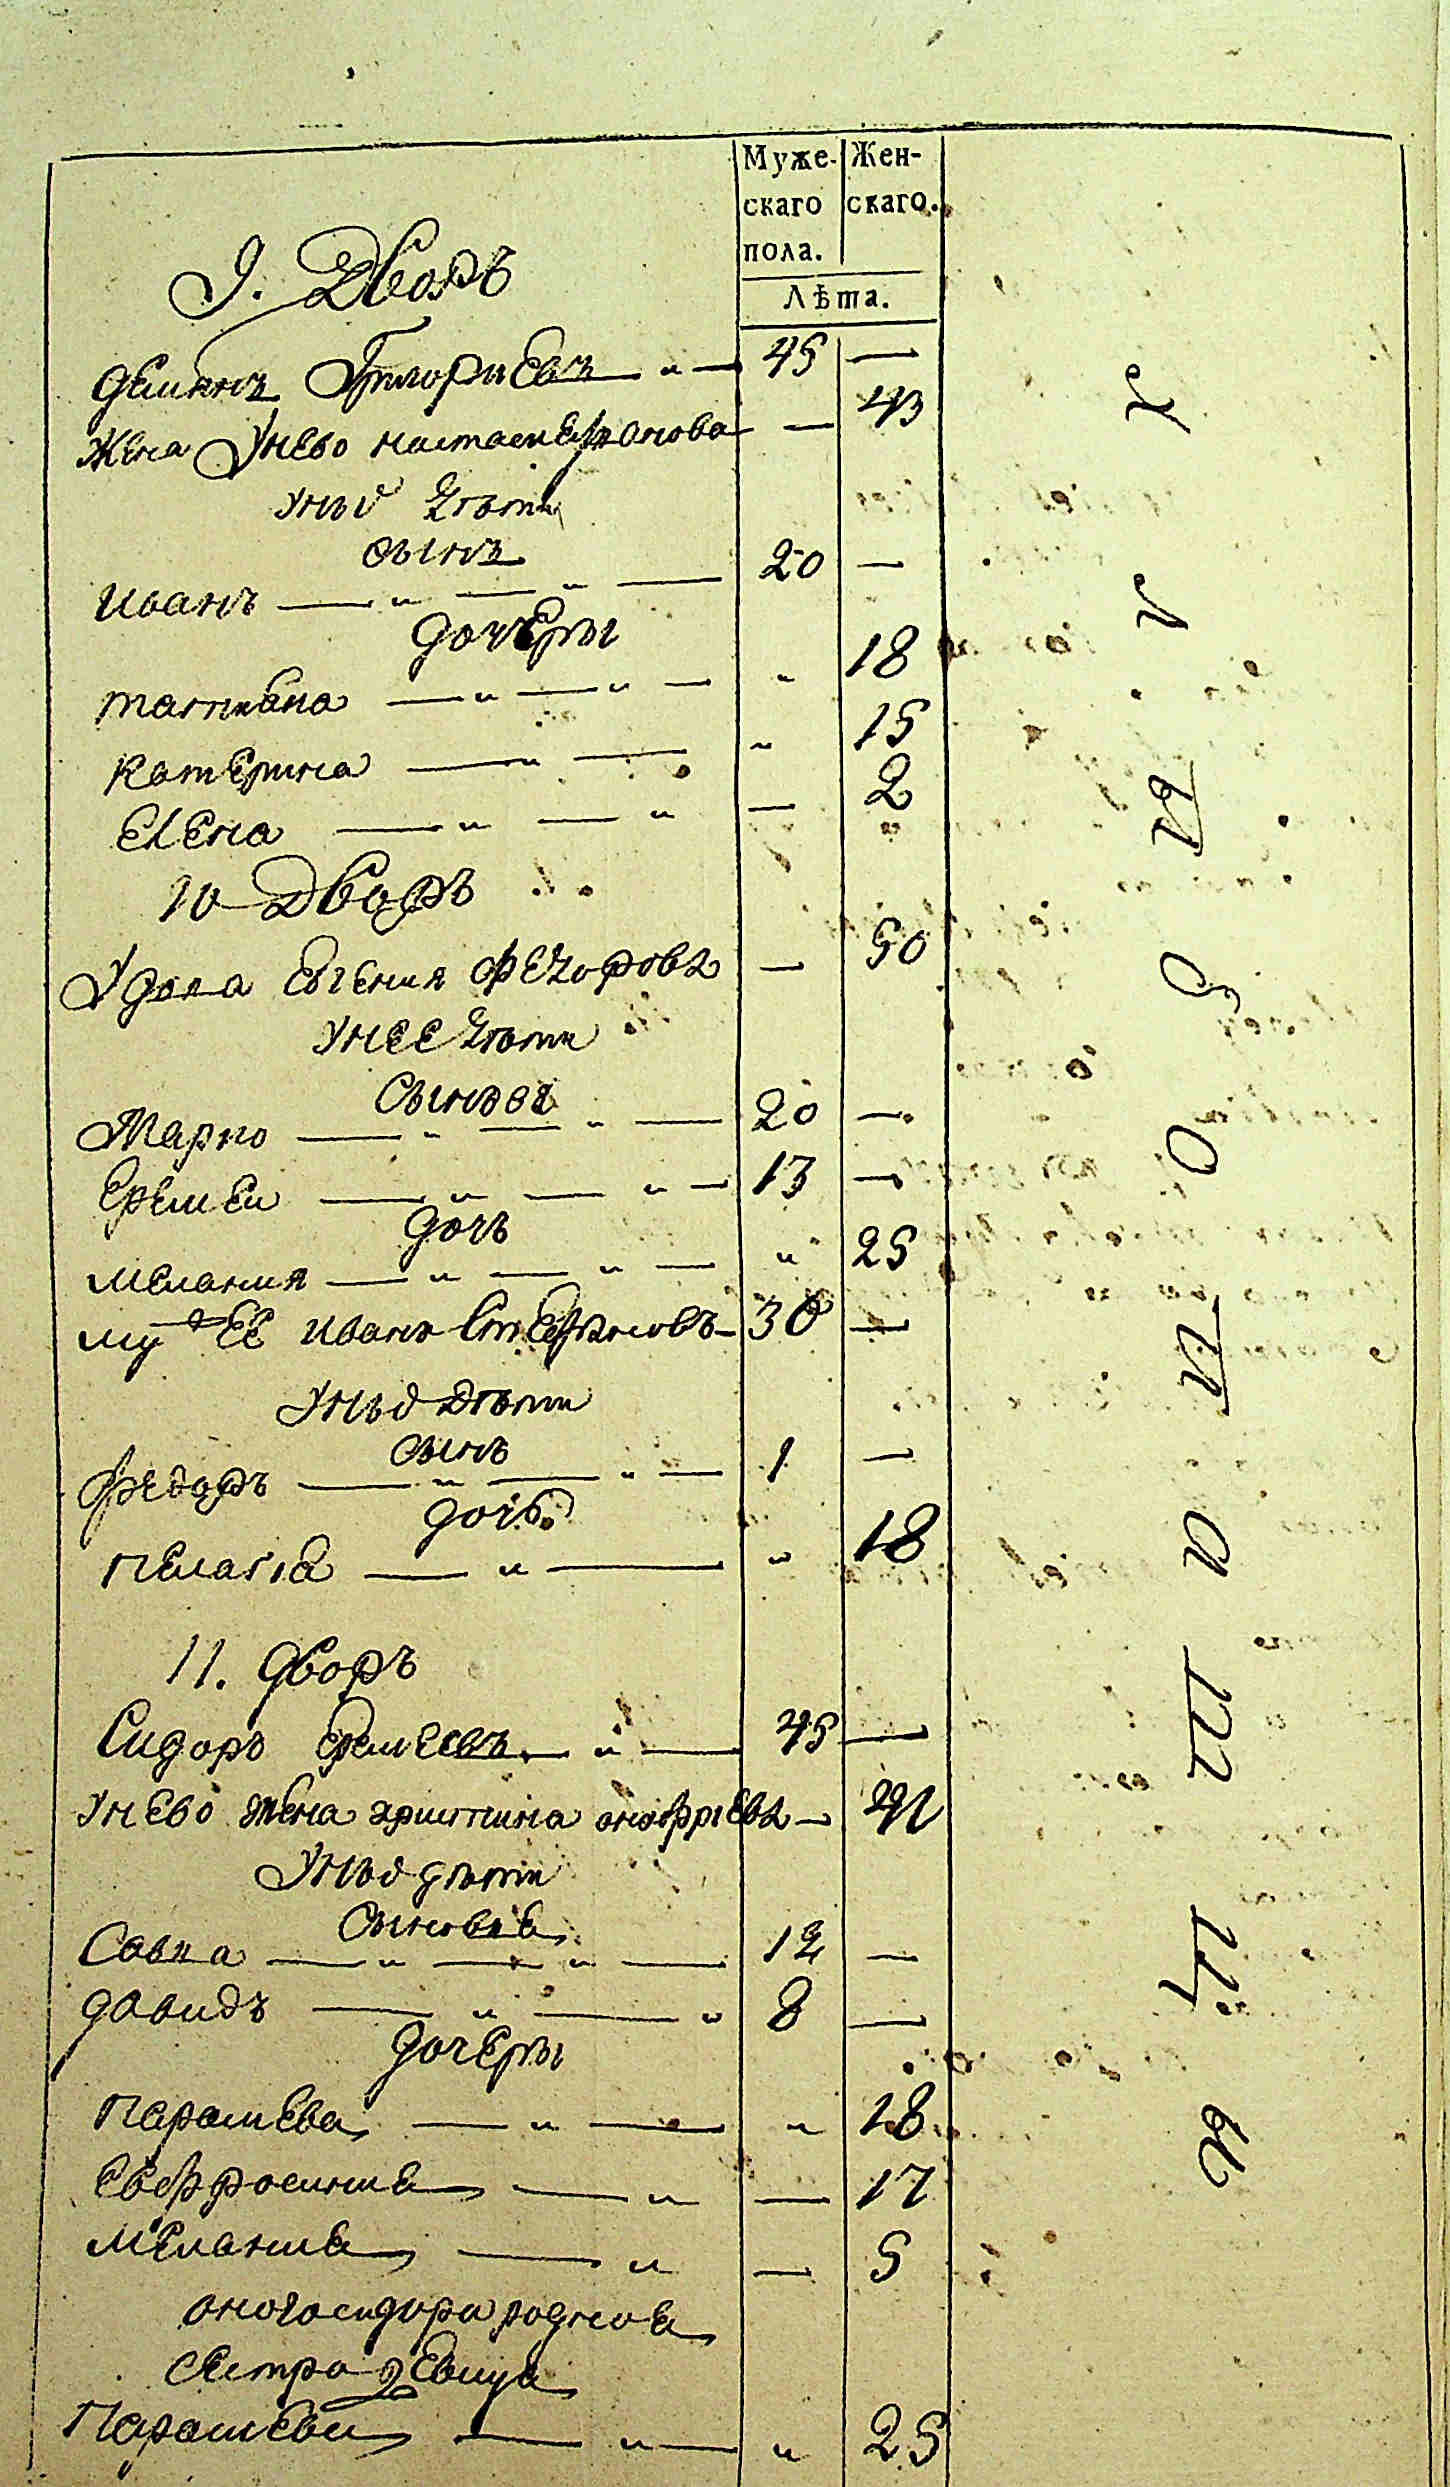 Муже-
скаго
пола.
Жен-
скаго.
Лѣта.
9. Дворъ
Демянъ Григориевъ 45 —
Жена Унево настасия — 43
Унихъ дѣти
сынъ
Иванъ 20 —
дочери
татиана 18
катерина 15
Елена — 2
10 Дворъ
Удова Евгения Федорова — 50
Унее дѣти
Сынове
Марко 20 —
Еремеи 13 —
дочь
мелания 25
му ее иванъ Стефановъ 30 —
Унихъ дѣти
сынъ
федоръ 1 —
дочь
пелагиа 18
11. дворъ
Сидоръ еремеевъ 45 —
Унево жена христина онофриева —
Унихъ дѣти
Сыновиа
Савка 12 —
давидъ 8 —
дочери
Парашева 18
Евфросиниа — 17
Меланиа — 5
оного сидора родная
сестра девица
Парашева 25